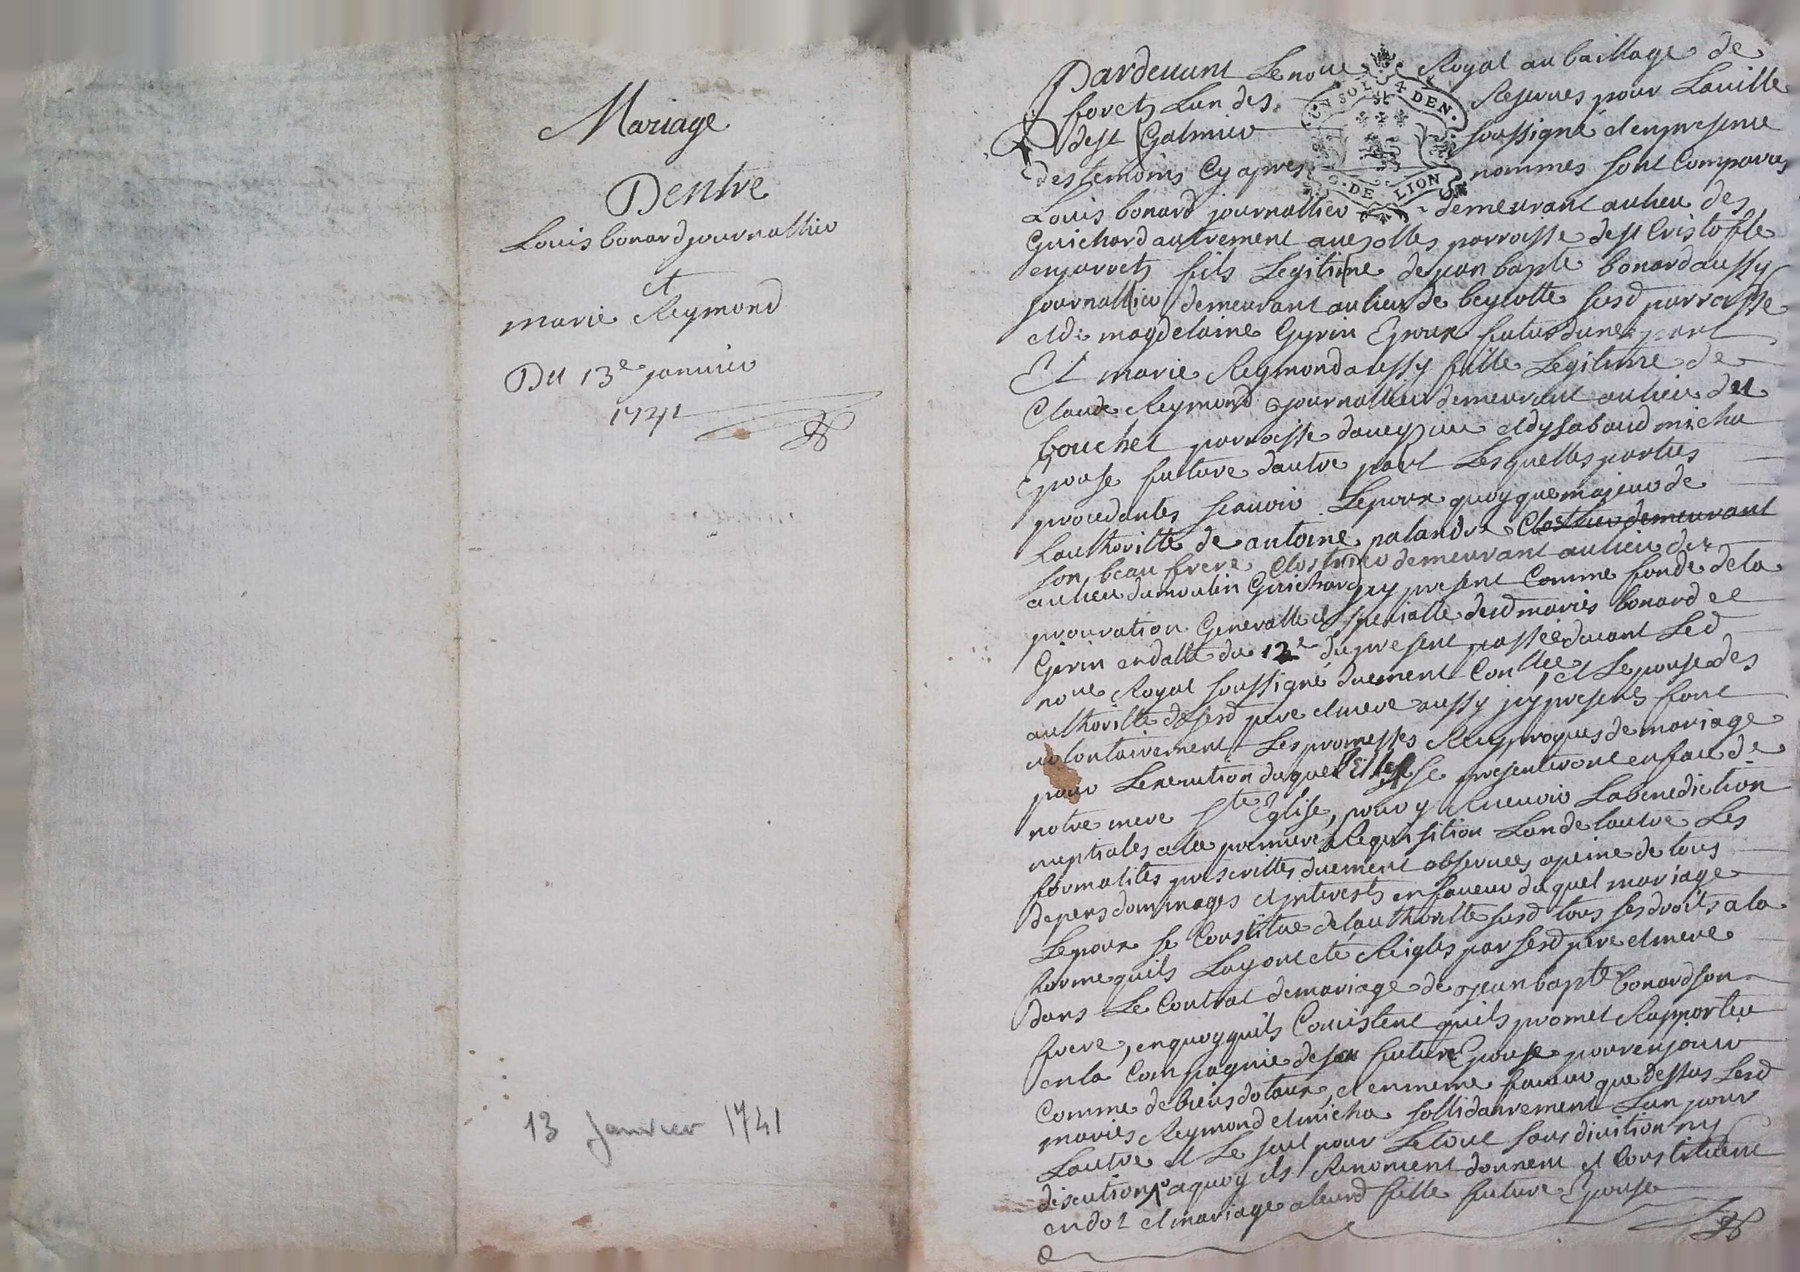 Mariage
Dentre
Louis bonard journallier
et
marie Reymond
Du 13e janvier
1741
13 Janvier 1741
Pardevant Le nore Royal au baillage de
forets Lun des Reserves pour Laville
de st Galmier soussigné et en presence
des temoins Cy apres nommes sont Comparus
UN SOL 4 DEN.
G. DE LION
Louis bonard journallier demeurant au lieu des
Guichard autrement parroisse de st Cristofle
en jarrets fils Legitime de jean bapte bonard aussy
journallier demeurant au lieu de susd parroisse
et de magdelaine Gyrin Epoux futur dune part
Et marie Reymond aussy fille Legitime de
Claude Reymond journallier demeurant au lieu du
bouchet parroisse et dysabaud micha
Epouse future dautre part Lesquelles parties
procedantes scavoir Lepoux quoyque majeur de
Lauthoritté de antoine palandre Clostrier demeurant
son beau frere Clostrier demeurant au lieu de
au lieu du moulin Guichard jcy present Comme fondé de la
procuration Generalle et specialle desd mariés bonard et
Girin en datte du 12e du present passée devant Led
nore Royal soussigné duement Conllée, et Lepouse des
authorittés de sesd pere et mere aussy jcy presents font
volontairement Les promesses Reciproques de mariage
pour Lexecution duquel Ils se presenteront en face de
notre mere Ste Eglise, pour y Recevoir La benediction
nuptiales a la premiere Requisition Lun de Lautre Les
formalités prescrittes duement observées a peine de tous
depens dommages et jnterests en faveur duquel mariage
Lepoux se Constitue de lauthoritté susd tous ses droits a la
forme quils Luy ont eté Reiglés par sesd pere et mere
dans Le Contrat de mariage de jean bapte bonard son
frere, en quoy quils Concistent quils promet Rapporter
en la Compagnie de sa future Epouse pour en jouir
Comme de biens dotaux, et en meme faveur que dessus Lesd
mariés Reymond et micha sollidairement Lun pour
Lautre et Le seul pour Letout sans division ny
discution a quoy ils Renoncent donnent et Constituent
en dot et mariage a leurd fille future Epouse